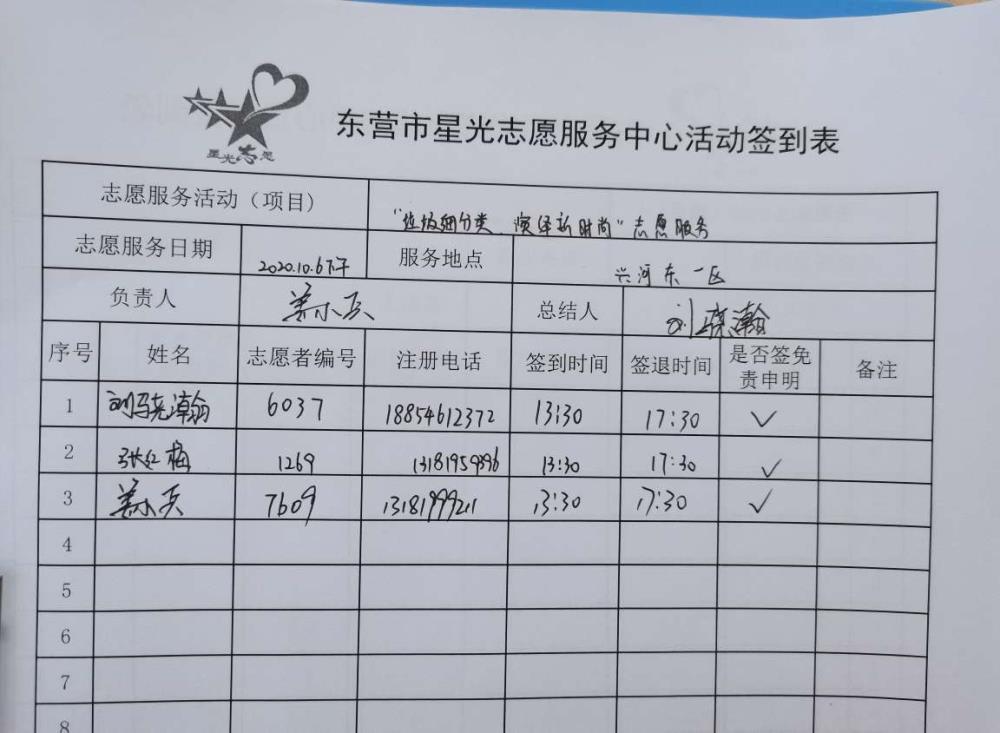 星光志愿
东营市星光志愿服务中心活动签到表
志愿服务活动（项目） "垃圾细分类、演绎新时尚"志愿服务
志愿服务日期 2020.10.6下午 服务地点 兴河东一区
负责人 姜小兵 总结人 刘骁瀚
序号 姓名 志愿者编号 注册电话 签到时间 签退时间 是否签免责申明 备注
1 刘骁瀚 6037 18854612372 13:30 17:30 ✓
2 张红梅 1269 13181959896 13:30 17:30 ✓
3 姜小兵 7609 13181999211 13:30 17:30 ✓
4
5
6
7
8